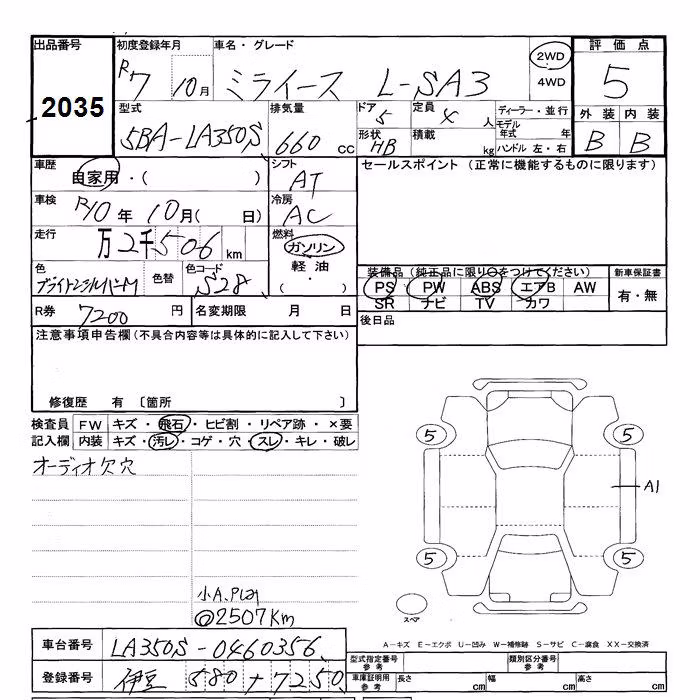 出品番号 初度登録年月 車名・グレード 評価点
2035 R7 10月 ミライース L-SA3 2WD 4WD 5
型式 排気量 ドア 定員 ディーラー・並行 外装 内装
5BA-LA350S 660cc 5 4人 モデル年式 年 B B
形状 HB 積載 kg ハンドル 左・右
車歴 自家用・( ) シフト AT セールスポイント(正常に機能するものに限ります)
車検 R10年 10月( 日) 冷房 AC
走行 万2千506km 燃料 ガソリン
軽油
・
( )
色 色替 色コード S28 装備品(純正品に限り○をつけてください) 新車保証書
PS PW ABS エアB AW 有・無
SR ナビ TV カワ
R券 7200円 名変期限 月 日 後日品
注意事項申告欄(不具合内容等は具体的に記入して下さい)
修復歴 有 〔箇所 〕
検査員 FW キズ・飛石・ヒビ割・リペア跡・×要
記入欄 内装 キズ・汚レ・コゲ・穴・スレ・キレ・破レ
オーディオ欠穴
5 5
A1
5 5
スペア
小A,
@2507Km
A-キズ E-エクボ U-凹み W-補修跡 S-サビ C-腐食 XX-交換済
車台番号 LA350S-0460356
型式指定番号 参考 類別区分番号 参考
登録番号 伊豆 580 7250
車庫証明用 参考 長さ cm 幅 cm 高さ cm